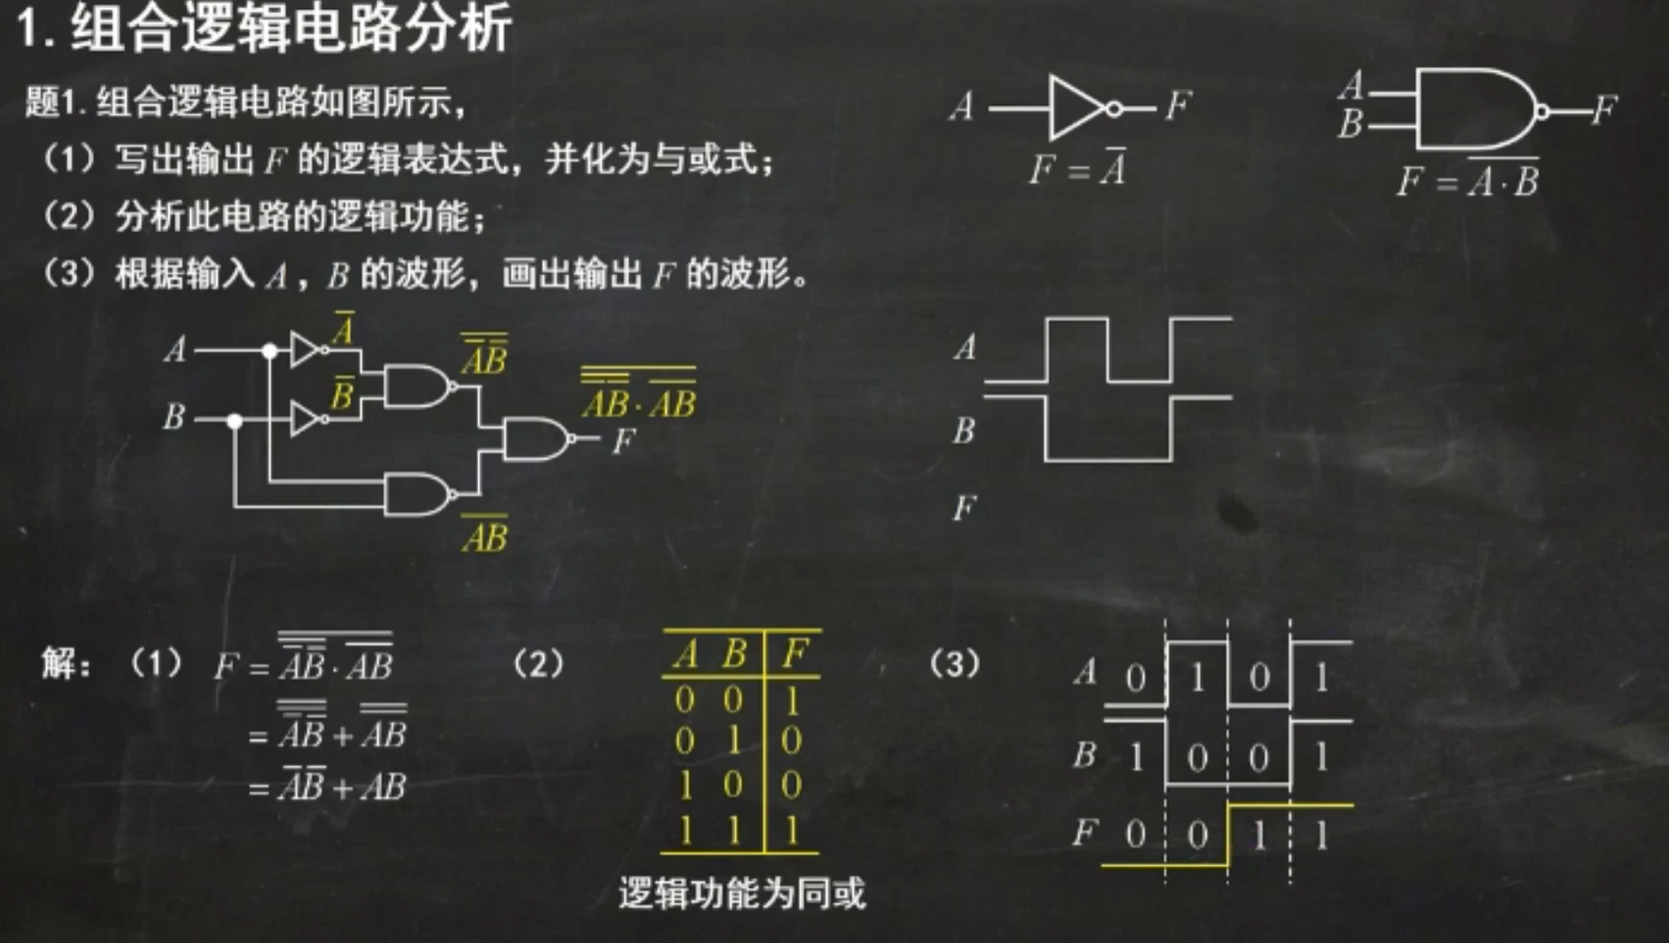 1.组合逻辑电路分析
题1.组合逻辑电路如图所示，
（1）写出输出 F 的逻辑表达式，并化为与或式；
（2）分析此电路的逻辑功能；
（3）根据输入 A，B 的波形，画出输出 F 的波形。
A F
F = A̅
A
B
F
F = \overline{A·B}
A
B
A̅
B̅
\overline{A̅B̅}
\overline{AB}
\overline{\overline{A̅B̅}·\overline{AB}}
F
A
B
F
解：（1） F = \overline{\overline{A̅B̅}·\overline{AB}}
= \overline{\overline{A̅B̅}} + \overline{\overline{AB}}
= A̅B̅ + AB
（2）
A B F
0 0 1
0 1 0
1 0 0
1 1 1
逻辑功能为同或
（3）
A 0 1 0 1
B 1 0 0 1
F 0 0 1 1